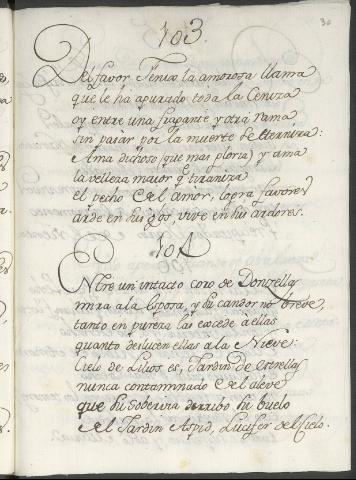 30
103.
Del favor Tenix la amorosa llama
que le ha apurado toda la Ceniza
oy entre una fragante y otra rama
sin pasar por la muerte se eterniza:
Ama dichoso (que mas gloria) y ama
la velleza maior q tiraniza
el pecho del Amor, logra favores
arde en sus ojos, vive en sus ardores.
104
ENtre un intacto coro de Donzellas
mira a la Esposa, y su candor no
tanto en pureza las excede àellas
quanto deslucen ellas a la Nieve:
Cielo de Lilios es, Jardin de Estrellas
nunca contaminado del aleve
que su sobervia derribo su buelo
del Jardin Aspid, Lucifer del Cielo.